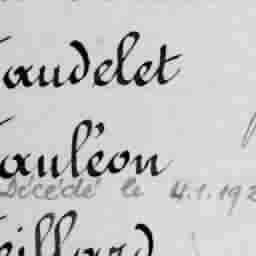 audelet
auléon
Décédé le 4.1.192
eillard